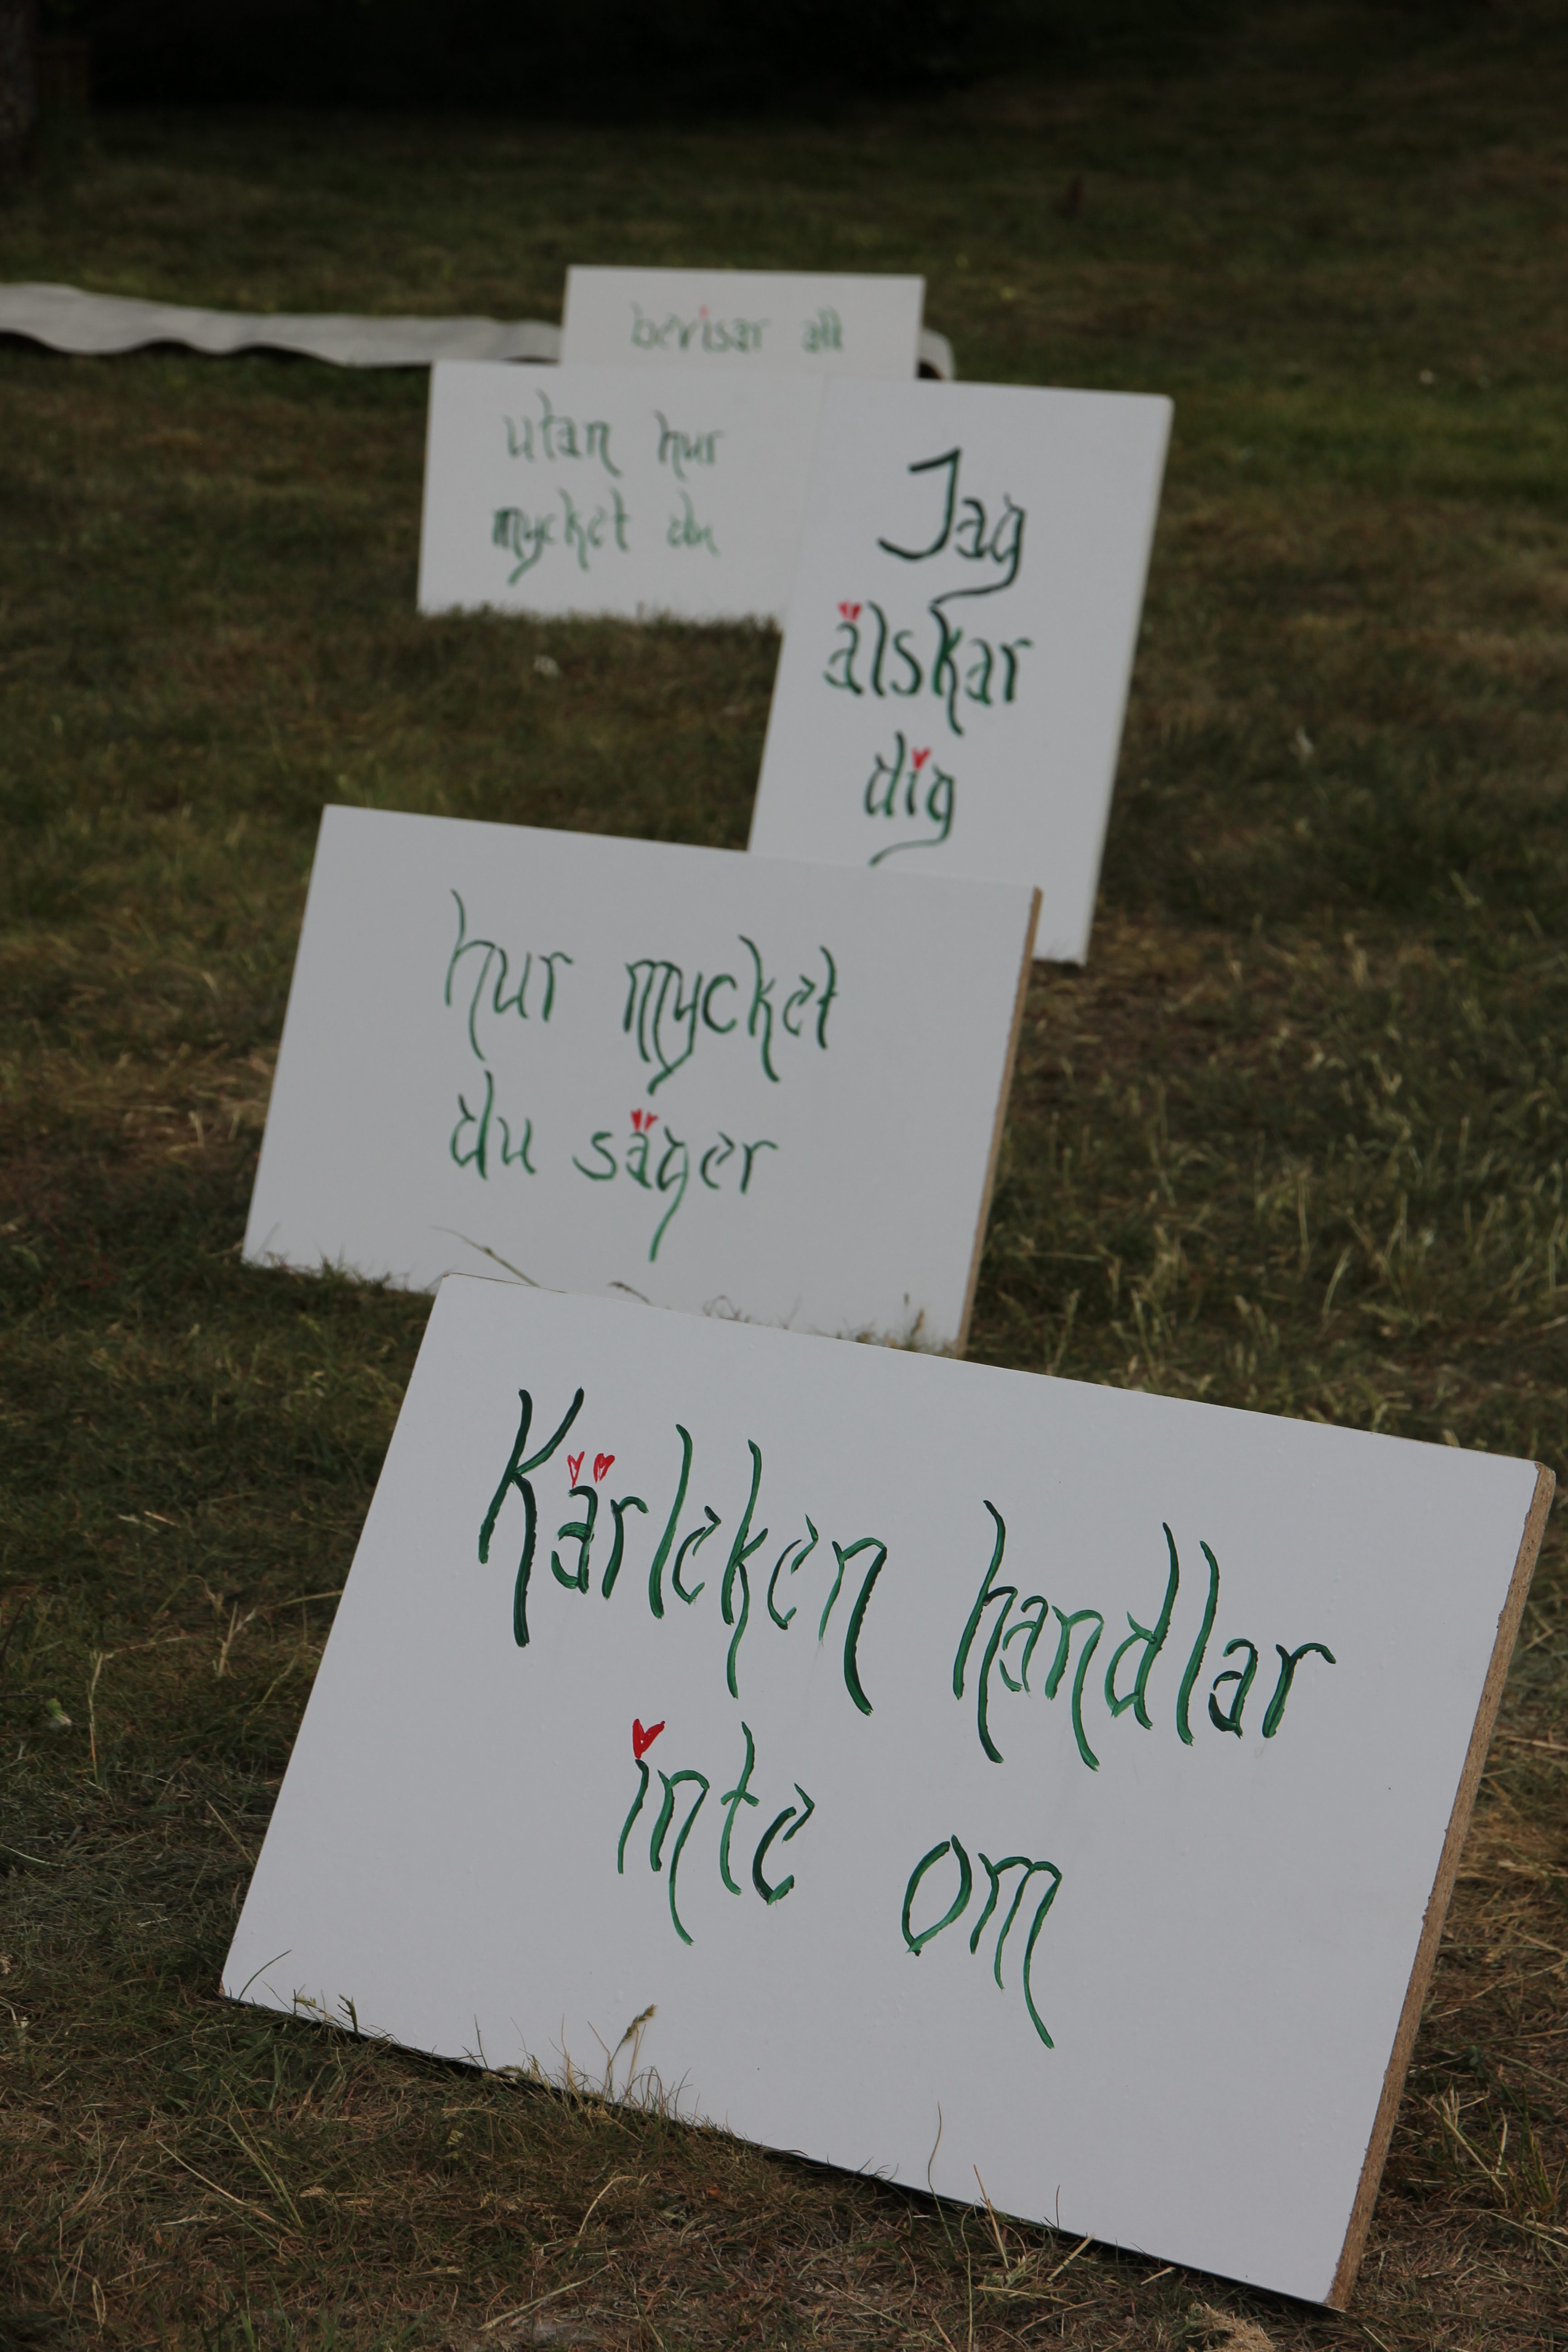 Kärleken handlar
inte om
hur mycket
du säger
Jag
älskar
dig
utan hur
mycket du
bevisar att